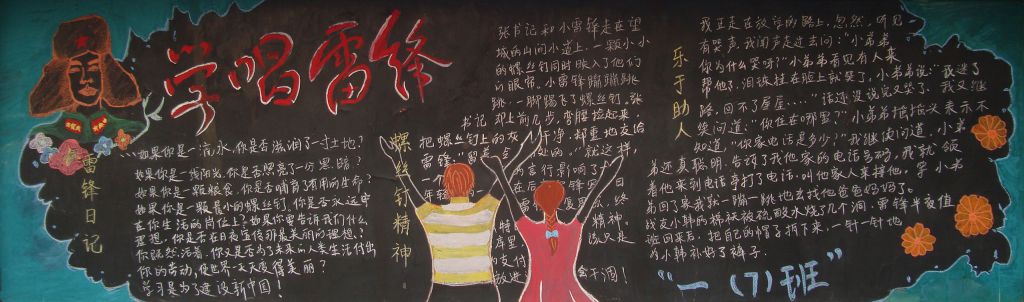 学唱雷锋
雷锋日记
如果你是一滴水,你是否滋润了一寸土地?
如果你是一线阳光,你是否照亮了一分黑暗?
如果你是一颗粮食,你是否哺育了有用的生命?
如果你是一颗最小的螺丝钉,你是否永远守
在你生活的岗位上?如果你要告诉我们什么
思想,你是否在日夜宣传那最美丽的理想?
你既然活着,你又是否为了未来的人类生活付出
你的劳动,使世界一天天变得美丽?
学习是为了建设新中国!
螺丝钉精神
张书记和小雷锋走在望
城的山间小道上,一颗小小
的螺丝钉同时映入了他们
的眼帘。小雷锋蹦蹦跳
跳,一脚踢飞了螺丝钉。张
书记却上前几步,弯腰捡起来,
把螺丝钉上的灰 干净,郑重地交给
雷锋:"留着, 会有用的。"就这样,
一个 的言行影响了
年轻的 在后
特 精神,
库里 以只是
的支付
放进 会干涸!
乐于助人
我正走在放学的路上,忽然,听见
有哭声,我闻声走过去问:"小弟弟
你为什么哭呀?"小弟弟看见有人来
帮他了,泪珠挂在脸上就笑了,小弟弟说:"我迷了
路,回不了屋屋....."话还没说完又哭了,我又继
续问道:"你住在哪里?"小弟弟摇摇头表示不
知道,"你家电话是多少?"我继续问道,小弟
弟还真聪明,告诉了我他家的电话号码,我就领
着他来到电话亭打了电话,叫他家人来接他。等小弟
弟回了家我就一蹦一跳地去找他爸爸妈妈了。
战友小韩的棉裤被硫酸水烧了几个洞,雷锋半夜值
班回来后,把自己的帽子拆下来,一针一针地
为小韩补好了裤子。
"一(7)班"